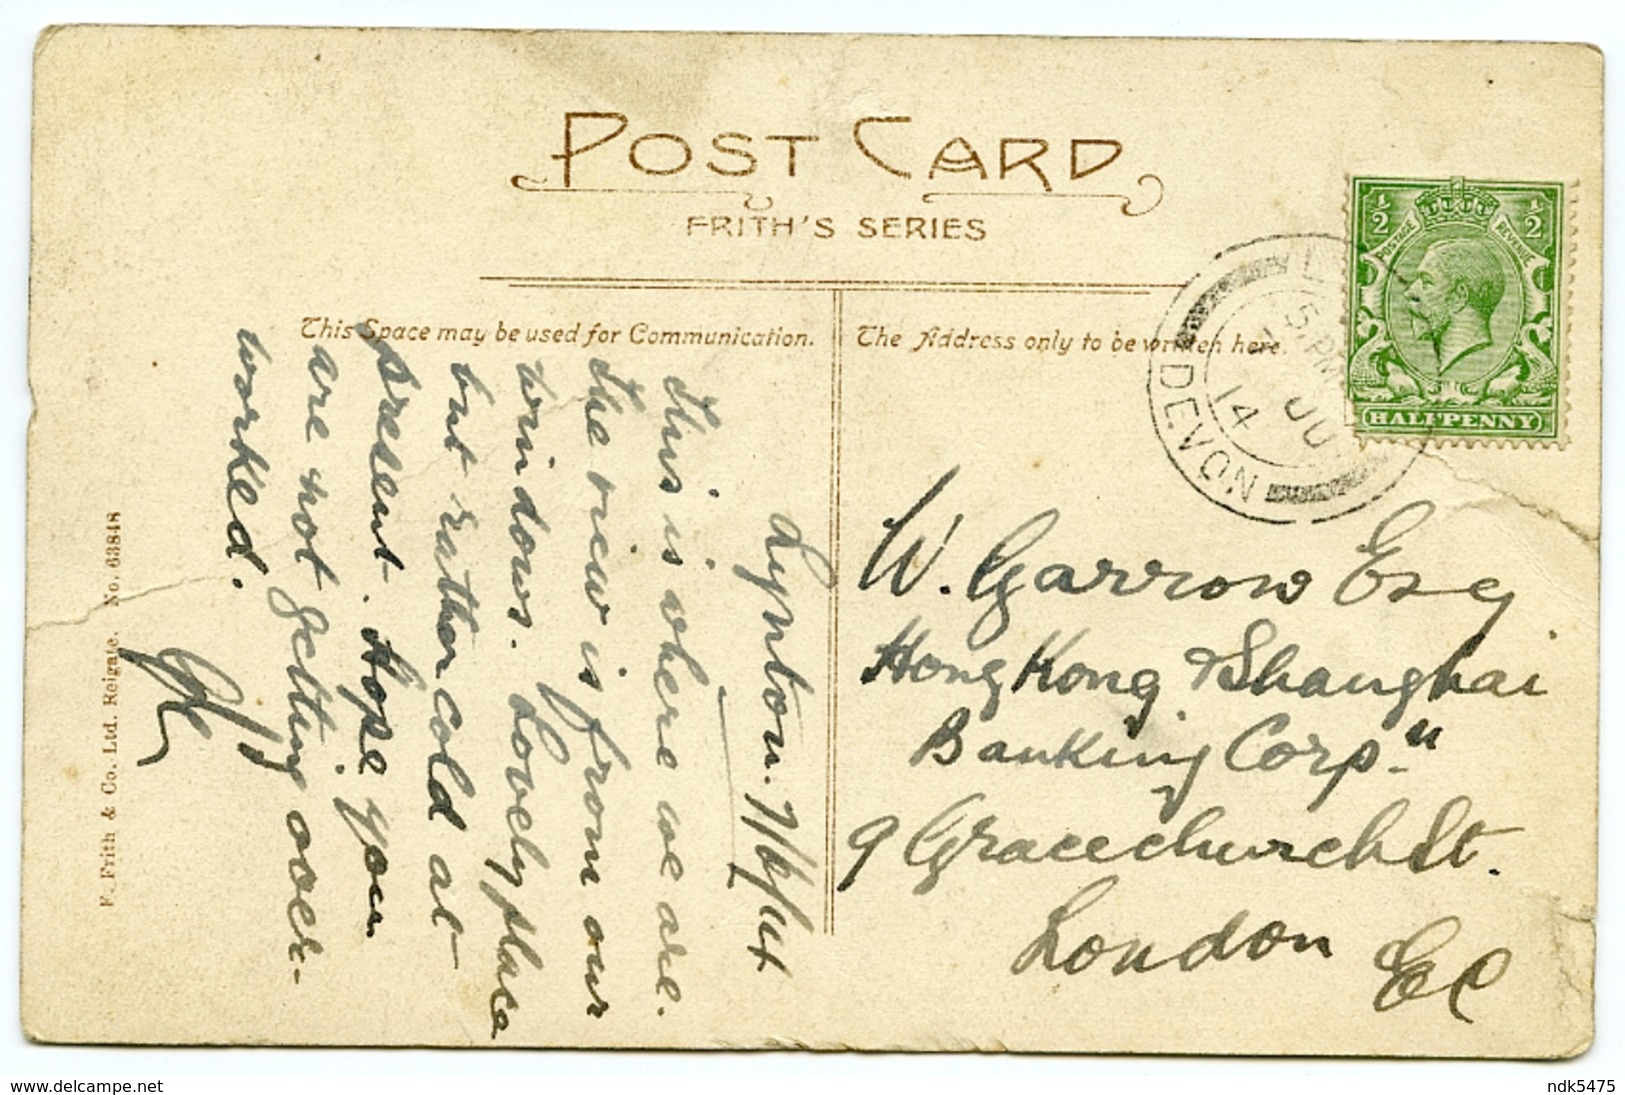 POST CARD
FRITH'S SERIES
This Space may be used for Communication.
The Address only to be written here.
½ ½
POSTAGE REVENUE
HALFPENNY
5. PM
JU
14
DEVON
Lynton. 7/6/14
This is where we are.
The view is from our
windows. Lovely place
but rather cold at
present. Hope you
are not getting over-
worked.
W. Garrow Esq
Hong Kong & Shanghai
Banking Corpn
9 Gracechurch St.
London
EC
F. Frith & Co. Ltd. Reigate. No. 63848
www.delcampe.net
ndk5475